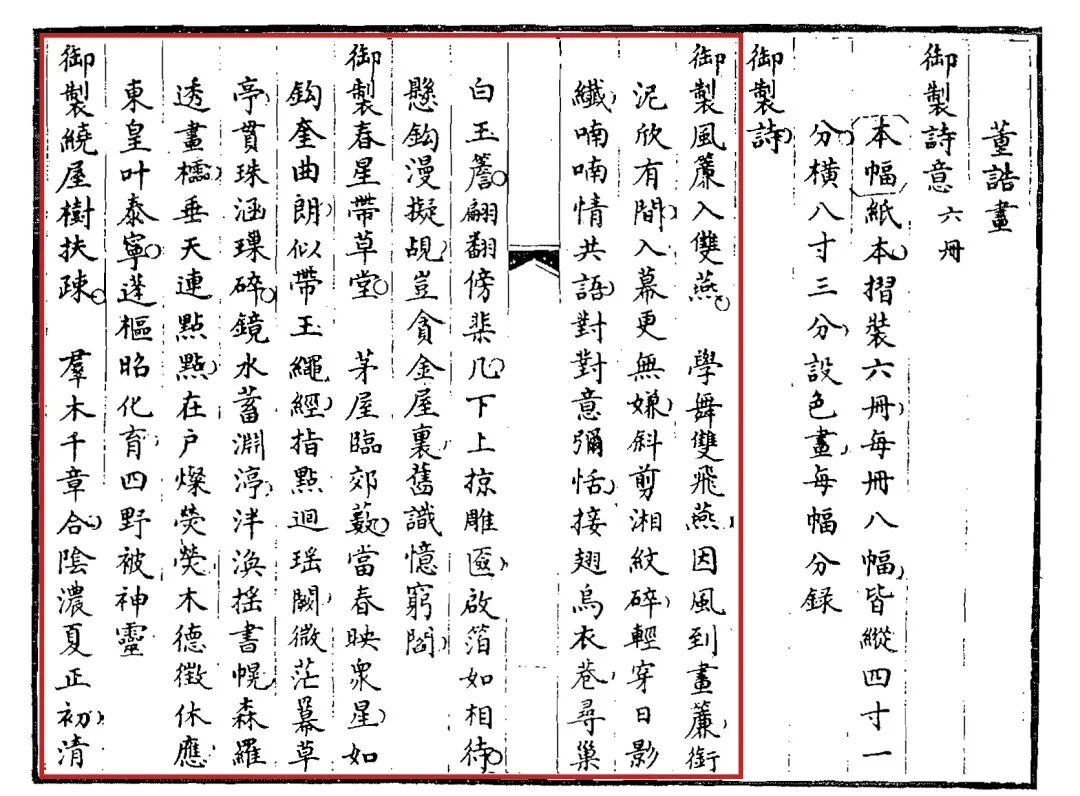 董誥畫
御製詩意六冊
本幅紙本摺裝六冊每冊八幅皆縱四寸一
分橫八寸三分設色畫每幅分錄
御製詩
御製風簾入雙燕 學舞雙飛燕因風到畫簾銜
泥欣有間入幕更無嫌斜剪湘紋碎輕穿日影
纖喃喃情共語對對意彌恬接翅烏衣巷尋巢
白玉簷翩翻傍棐几下上掠雕匳啟箔如相待
懸鈎漫擬覘豈貪金屋裏舊識憶窮閻
御製春星帶草堂 茅屋臨郊藪當春映衆星如
鈎奎曲朗似帶玉繩經指點迴瑤闕微茫羃草
亭貫珠涵璅碎鏡水蓄淵渟泮渙搖書幌森羅
透畫櫺垂天連點點在户燦熒熒木德徵休應
東皇叶泰寧蓬樞昭化育四野被神靈
御製繞屋樹扶疎 羣木千章合陰濃夏正初清